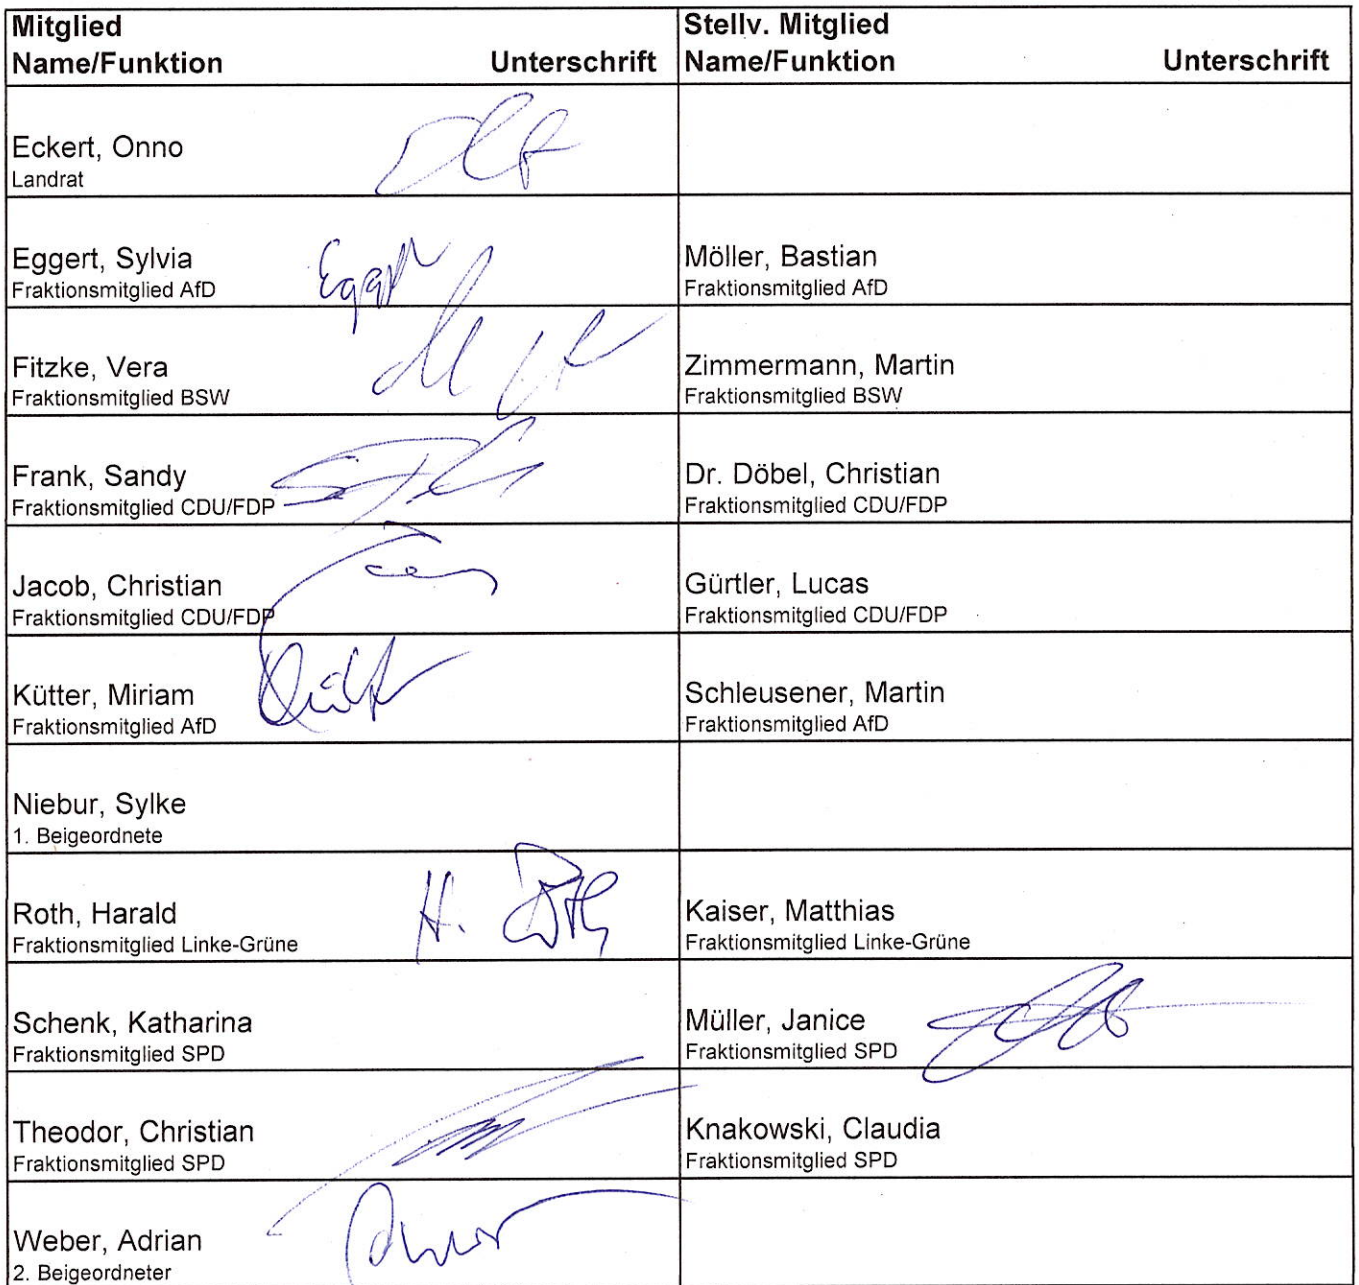 Mitglied
Name/Funktion Unterschrift
Stellv. Mitglied
Name/Funktion Unterschrift
Eckert, Onno
Landrat
Eggert, Sylvia
Fraktionsmitglied AfD
Möller, Bastian
Fraktionsmitglied AfD
Fitzke, Vera
Fraktionsmitglied BSW
Zimmermann, Martin
Fraktionsmitglied BSW
Frank, Sandy
Fraktionsmitglied CDU/FDP
Dr. Döbel, Christian
Fraktionsmitglied CDU/FDP
Jacob, Christian
Fraktionsmitglied CDU/FDP
Gürtler, Lucas
Fraktionsmitglied CDU/FDP
Kütter, Miriam
Fraktionsmitglied AfD
Schleusener, Martin
Fraktionsmitglied AfD
Niebur, Sylke
1. Beigeordnete
Roth, Harald H. Roth
Fraktionsmitglied Linke-Grüne
Kaiser, Matthias
Fraktionsmitglied Linke-Grüne
Schenk, Katharina
Fraktionsmitglied SPD
Müller, Janice
Fraktionsmitglied SPD
Theodor, Christian
Fraktionsmitglied SPD
Knakowski, Claudia
Fraktionsmitglied SPD
Weber, Adrian
2. Beigeordneter